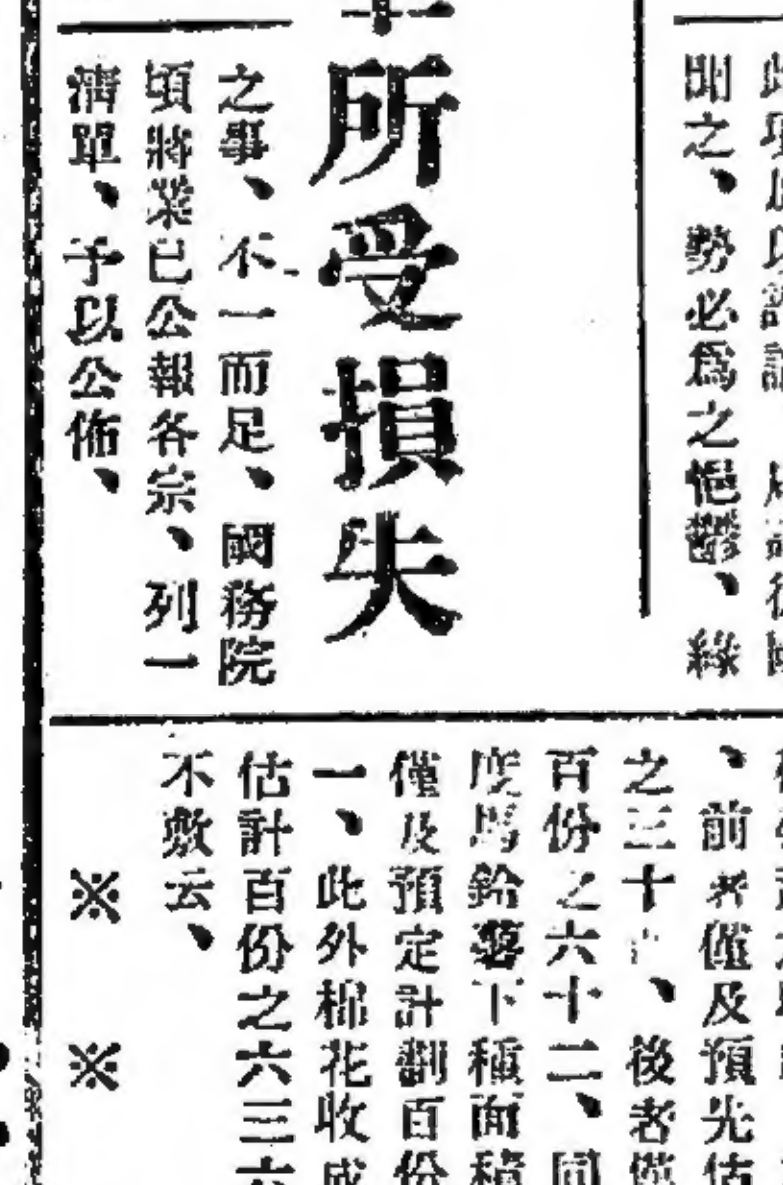 聞之、勢必爲之悒鬱、綠
所受損失
之事、不一而足、國務院
頃將業已公報各宗、列一
清單、予以公佈、
、前者僅及預先估
之三十、後者僅
百份之六十二、同
度馬鈴薯下種面積
僅及預定計劃百份
一、此外棉花收成
估計百份之六三六
不敷云、
※ ※